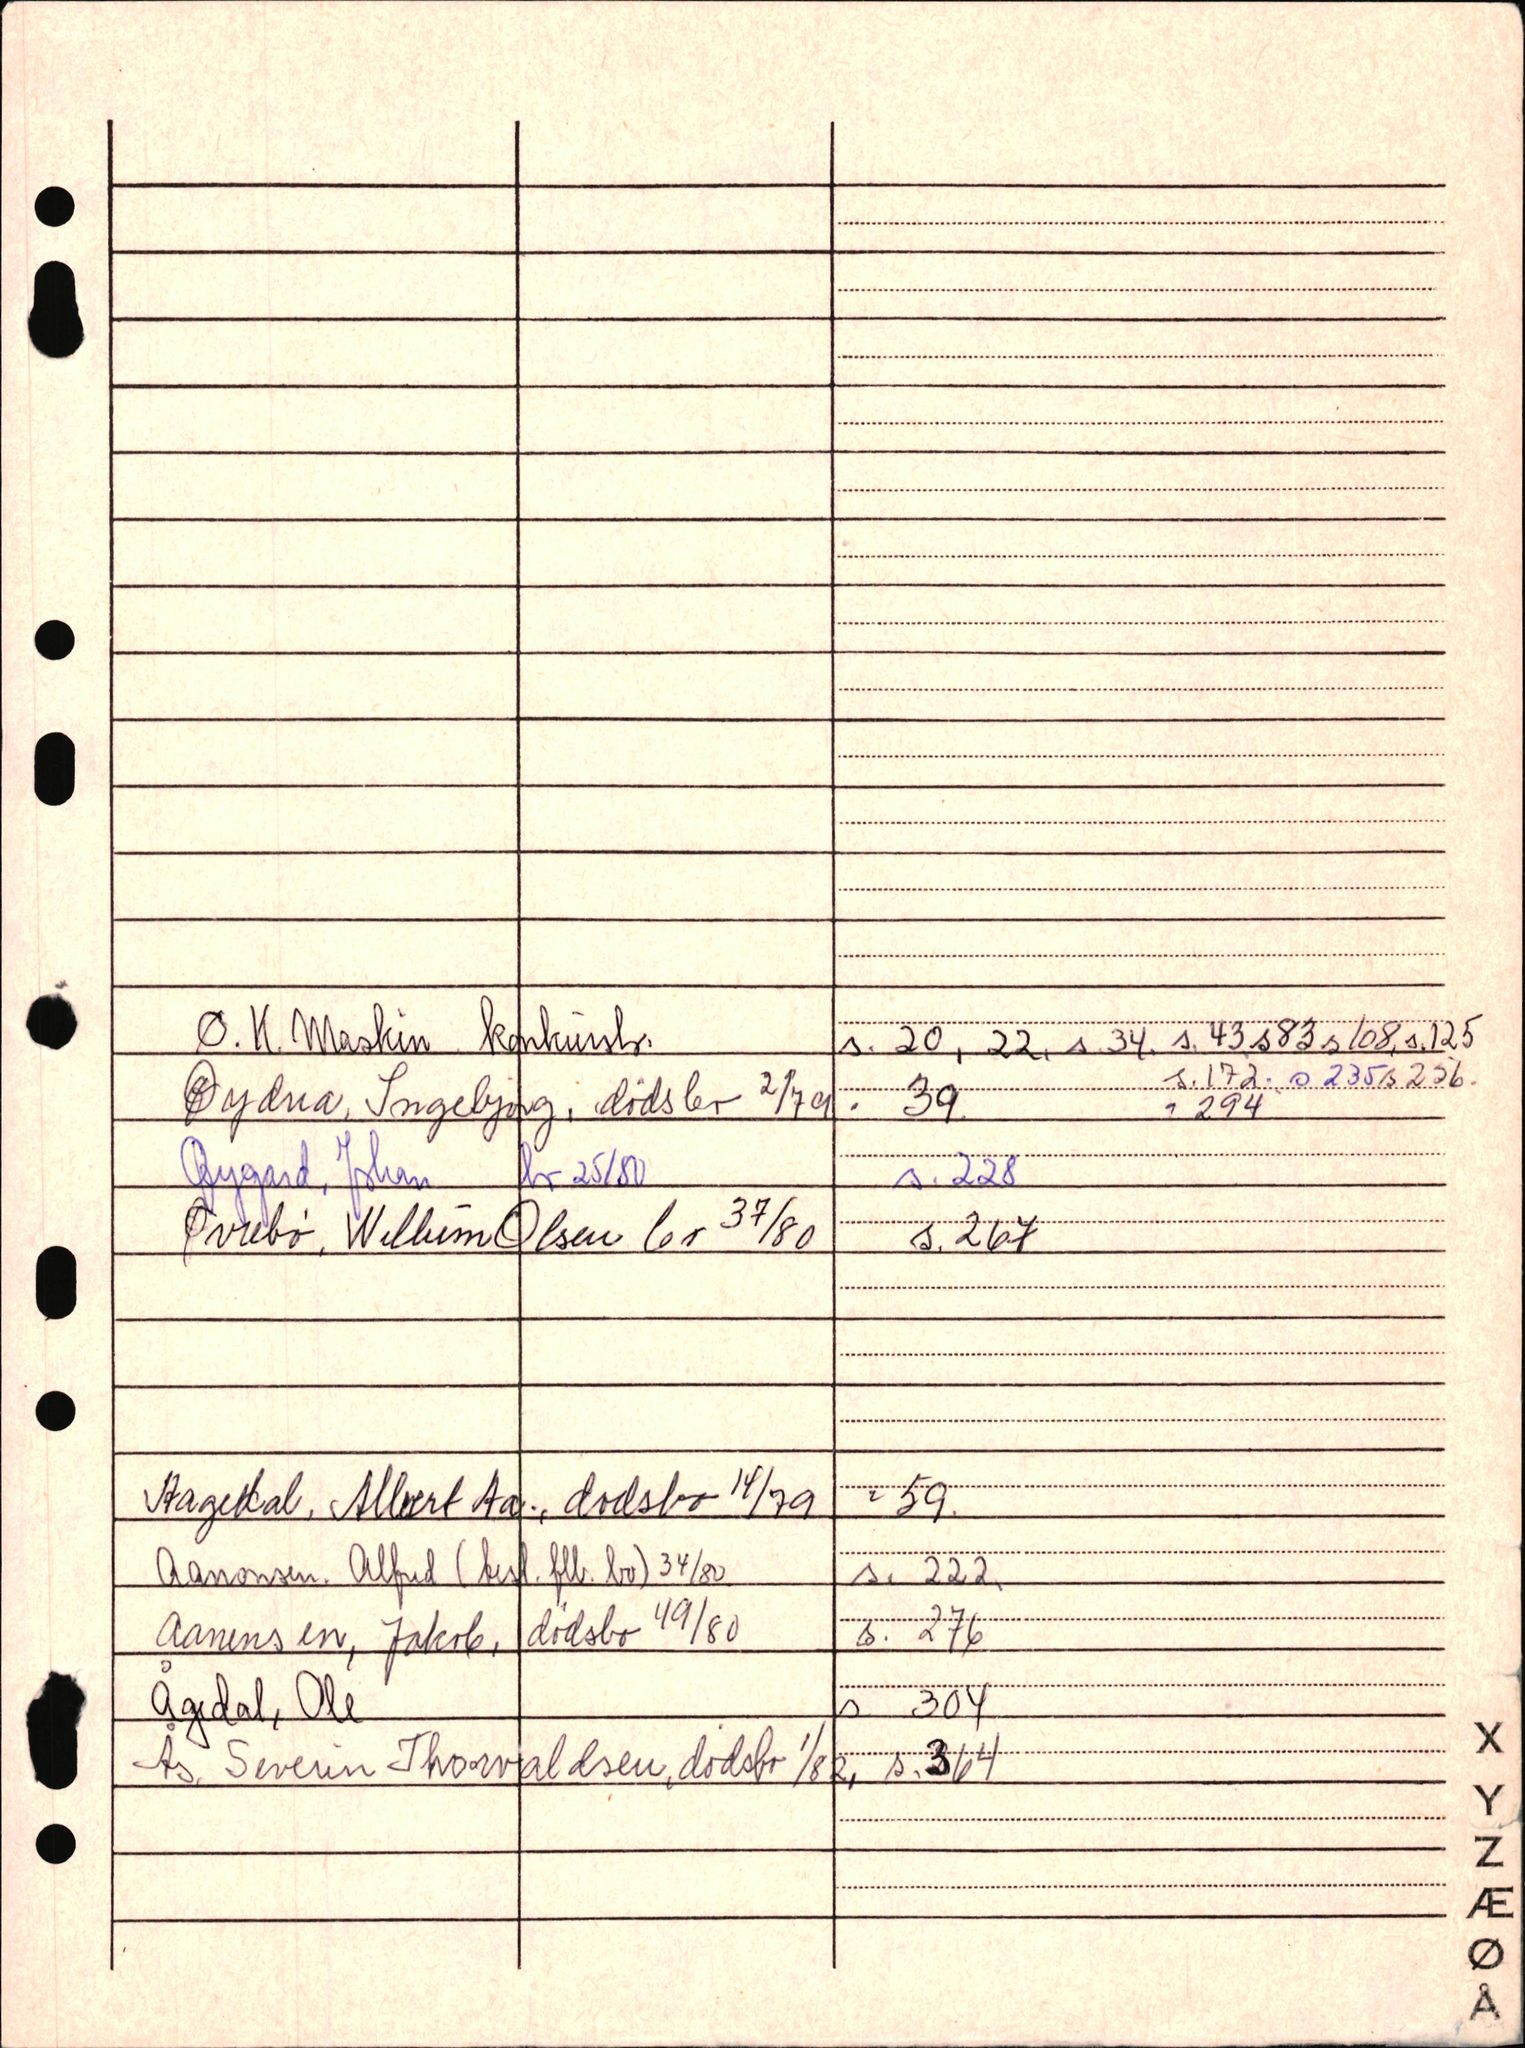 Ø. K. Maskin konkursb. s. 20, 22, s 34. s. 43 s 83 s 108, s. 125
s. 172. s 235 s 256.
Øydna, Ingebjørg, dødsbo 2/79 " 39. " 294
Øygard, Johan bo 25/80 s. 228
Øvrebø, Wilhelm Olsen bo 37/80 s. 267
Aagedal, Albert Aa., dødsbo 14/79 " 59.
Aanonsen. Alfred ( bo) 34/80 s. 222.
Aanensen, Jakob, dødsbo 49/80 s. 276
Ågedal, Ole s 304
Ås, Severin Thorvaldsen, dødsbo 1/82, s. 364
X
Y
Z
Æ
Ø
Å